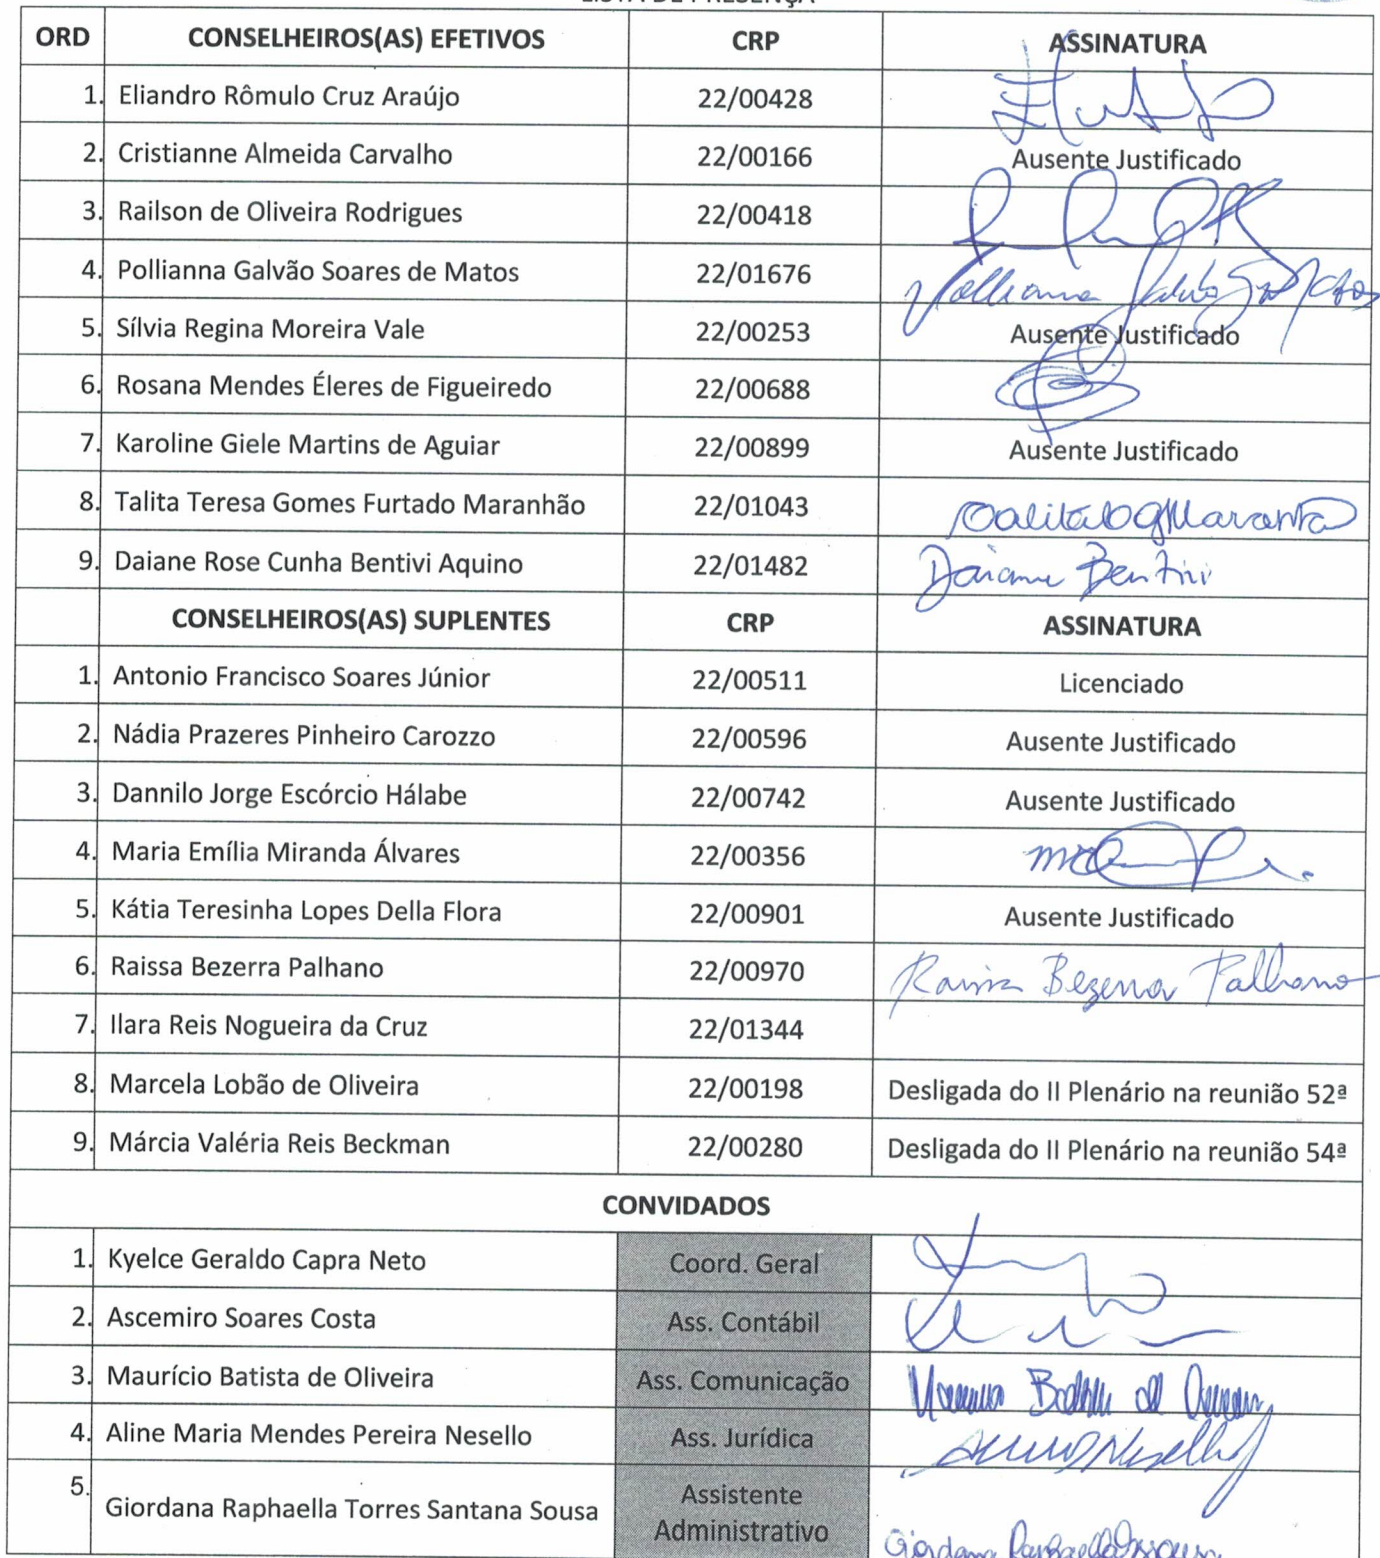 LISTA DE PRESENÇA
ORD CONSELHEIROS(AS) EFETIVOS CRP ASSINATURA
1. Eliandro Rômulo Cruz Araújo 22/00428
2. Cristianne Almeida Carvalho 22/00166 Ausente Justificado
3. Railson de Oliveira Rodrigues 22/00418
4. Pollianna Galvão Soares de Matos 22/01676
5. Sílvia Regina Moreira Vale 22/00253 Ausente Justificado
6. Rosana Mendes Éleres de Figueiredo 22/00688
7. Karoline Giele Martins de Aguiar 22/00899 Ausente Justificado
8. Talita Teresa Gomes Furtado Maranhão 22/01043
9. Daiane Rose Cunha Bentivi Aquino 22/01482 Daiane Bentivi
CONSELHEIROS(AS) SUPLENTES CRP ASSINATURA
1. Antonio Francisco Soares Júnior 22/00511 Licenciado
2. Nádia Prazeres Pinheiro Carozzo 22/00596 Ausente Justificado
3. Dannilo Jorge Escórcio Hálabe 22/00742 Ausente Justificado
4. Maria Emília Miranda Álvares 22/00356
5. Kátia Teresinha Lopes Della Flora 22/00901 Ausente Justificado
6. Raissa Bezerra Palhano 22/00970 Raissa Bezerra Palhano
7. Ilara Reis Nogueira da Cruz 22/01344
8. Marcela Lobão de Oliveira 22/00198 Desligada do II Plenário na reunião 52ª
9. Márcia Valéria Reis Beckman 22/00280 Desligada do II Plenário na reunião 54ª
CONVIDADOS
1. Kyelce Geraldo Capra Neto Coord. Geral
2. Ascemiro Soares Costa Ass. Contábil
3. Maurício Batista de Oliveira Ass. Comunicação
4. Aline Maria Mendes Pereira Nesello Ass. Jurídica
5. Giordana Raphaella Torres Santana Sousa Assistente
Administrativo